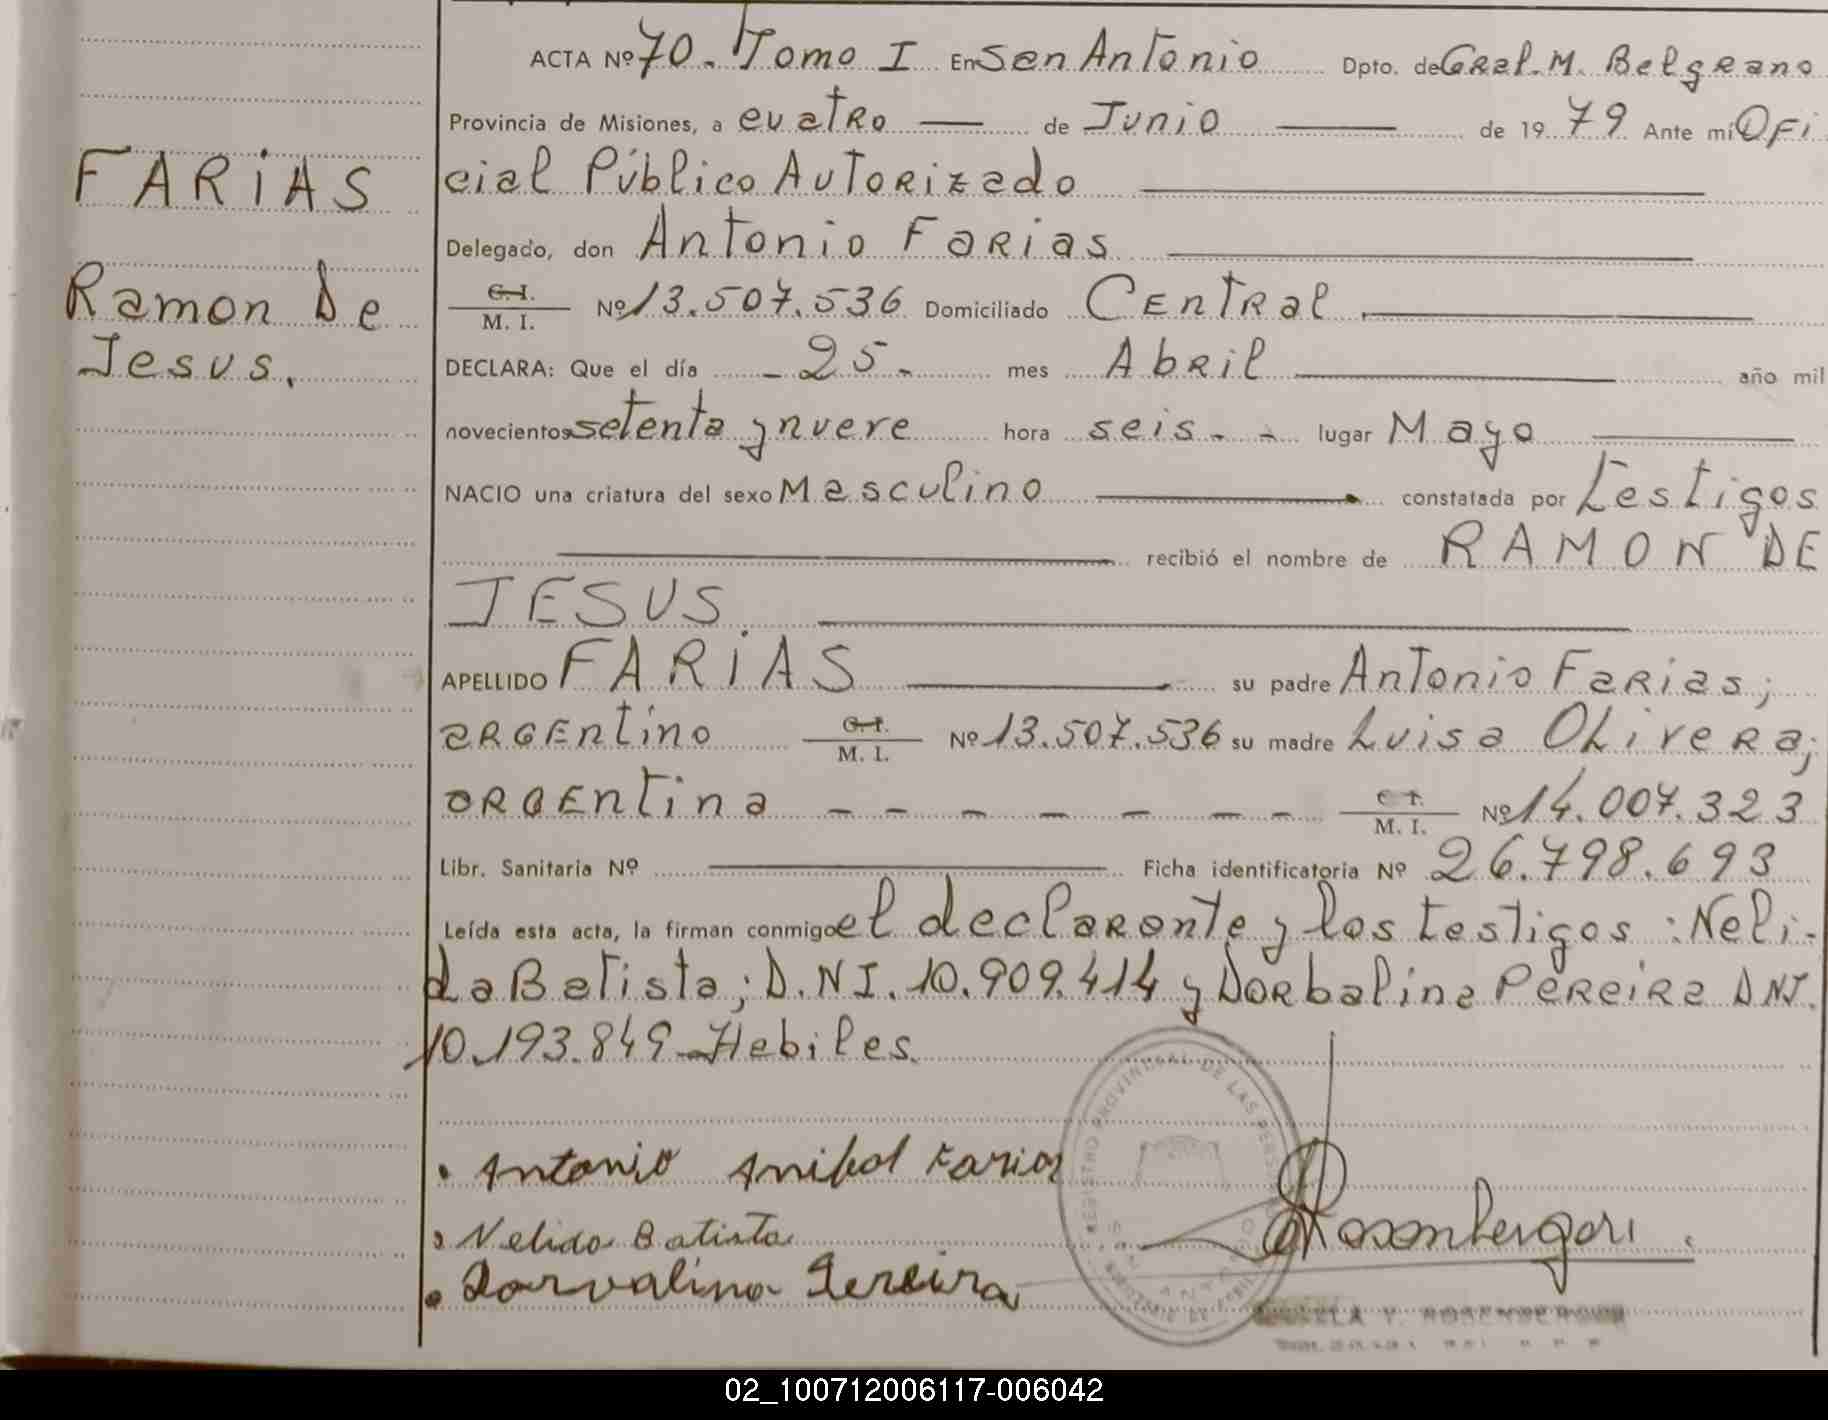 ACTA Nº 70. Tomo I En San Antonio Dpto. de Gral. M. Belgrano
Provincia de Misiones, a cuatro — de Junio — de 19 79 Ante mí Ofi
FARIAS
cial Público Autorizado
Delegado, don Antonio Farias
Ramon De
C. I.
M. I. Nº 13.507.536 Domiciliado Central
Jesus.
DECLARA: Que el día - 25 - mes Abril año mil
novecientos setenta y nueve hora seis. - lugar Mayo
NACIO una criatura del sexo Masculino constatada por Testigos
recibió el nombre de RAMON DE
JESUS
APELLIDO FARIAS su padre Antonio Farias;
argentino C. I. M. I. Nº 13.507.536 su madre Luisa Olivera;
argentina - - - - - - C. I. M. I. Nº 14.007.323
Libr. Sanitaria Nº Ficha identificatoria Nº 26.798.693
Leída esta acta, la firman conmigo el declarante y los testigos: Neli-
da Batista; D.NI. 10.909.414 y Dorbalina Pereira DNI.
10.193.849-Habiles.
Antonio Anibal Farias
Nelida Batista
Rosenbergeri
Dorvalina Pereira
REGISTRO PROVINCIAL DE LAS PERSONAS
SAN ANTONIO
02_100712006117-006042